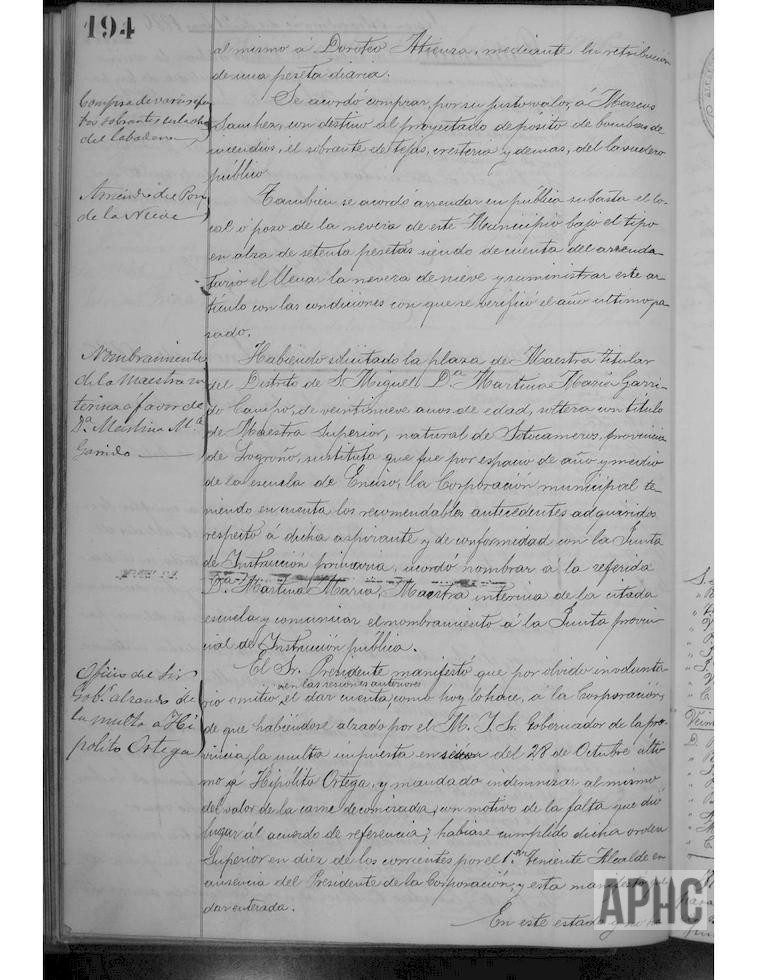 194
al mismo á Doroteo Atienza, mediante la retribución
de una peseta diaria.
Compra de varios efec
tos sobrantes en la obra
del Labadero
Se acordó comprar, por su justo valor, á Marcos
Sanchez, con destino al proyectado depósito de bombas de
incendios, el sobrante de tejas, cresteria y demas, del lavadero
público
Arriendo del Pozo
de la Nieve
Tambien se acordó arrendar en pública subasta el lo-
cal ó pozo de la nevera de este Municipio bajo el tipo
en alza de setenta pesetas siendo de cuenta del arrenda-
tario el llenar la nevera de nieve y suministrar este ar-
tículo con las condiciones con que se verificó el año ultimo pa-
sado.
Nombramiento
de la maestra in
terina á favor de
Dª Martina Mª
Garrido
Habiendo solicitado la plaza de Maestra titular
del Distrito de S. Miguel Dª Martina Maria Garri-
do Campo, de veintinueve anos de edad, soltera con titulo
de Maestra Superior, natural de Sotocameros, provincia
de Logroño, sustituta que fue por espacio de año y medio
de la escuela de Enciso, la Corporación municipal te-
niendo en cuenta los recomendables antecedentes adquiridos
respeito á dicha aspirante y de conformidad con la Junta
de Instrucción primaria, acordó nombrar á la referida
Dª Martina Maria, Maestra interina de la citada
escuela y comunicar el nombramiento á la Junta provin-
cial de Instrucción pública.
Oficio del Sr
Gobr alzando de
la multa a Hi
polito Ortega
El Sr. Presidente manifestó que por olvido involunta-
en las sesiones anteriores
rio omitio el dar cuenta, como hoy lo hace, á la Corporación,
de que habiéndose alzado por el M. I. Sr. Gobernador de la pro-
vincia, la multa impuesta en sesion del 28 de Octubre últi-
mo á Hipólito Ortega, y mandado indemnizar al mismo
del valor de la carne decomisada, con motivo de la falta que dió
lugar al acuerdo de referencia; habiase cumplido dicha orden
Superior en diez de los corrientes por el 1.er Teniente Alcalde en
ausencia del Presidente de la Corporación, y esta manifestó que-
dar enterada.
En este estado y no
APHC